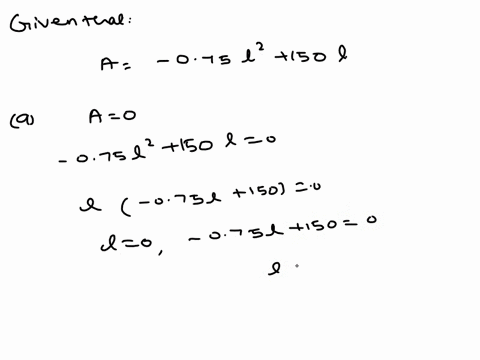 Given that:
A = -0.75 l² + 150 l
(a) A = 0
-0.75 l² + 150 l = 0
l (-0.75 l + 150) = 0
l = 0, -0.75 l + 150 = 0
l